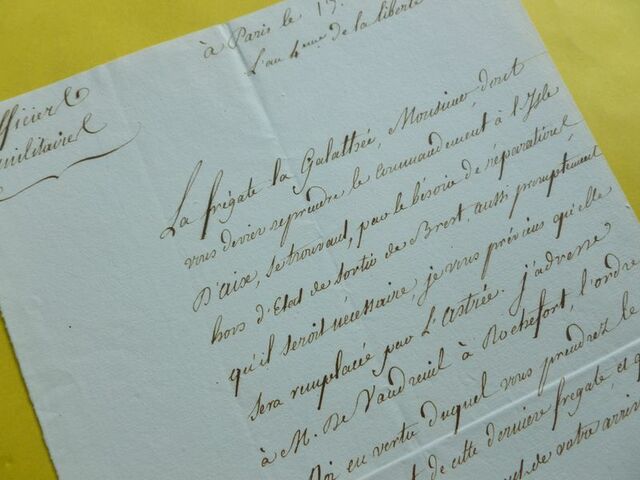 à Paris le 15
L'an 4eme de la liberté
fficiers
militaires
La frégate la Galathée, Monsieur, dont
vous deviez reprendre le commandement à l'Isle
D'aix, se trouvant, par le besoin de réparations
hors d'Etat de sortir de Brest, aussi promptement
qu'il seroit nécessaire, je vous préviens qu'elle
sera remplacée par L'astrée. j'adresse
à M. De Vaudreuil à Rochefort, l'ordre
Roi en vertu duquel vous prendrez le
t de cette dernière frégate, et q
de votre arriv